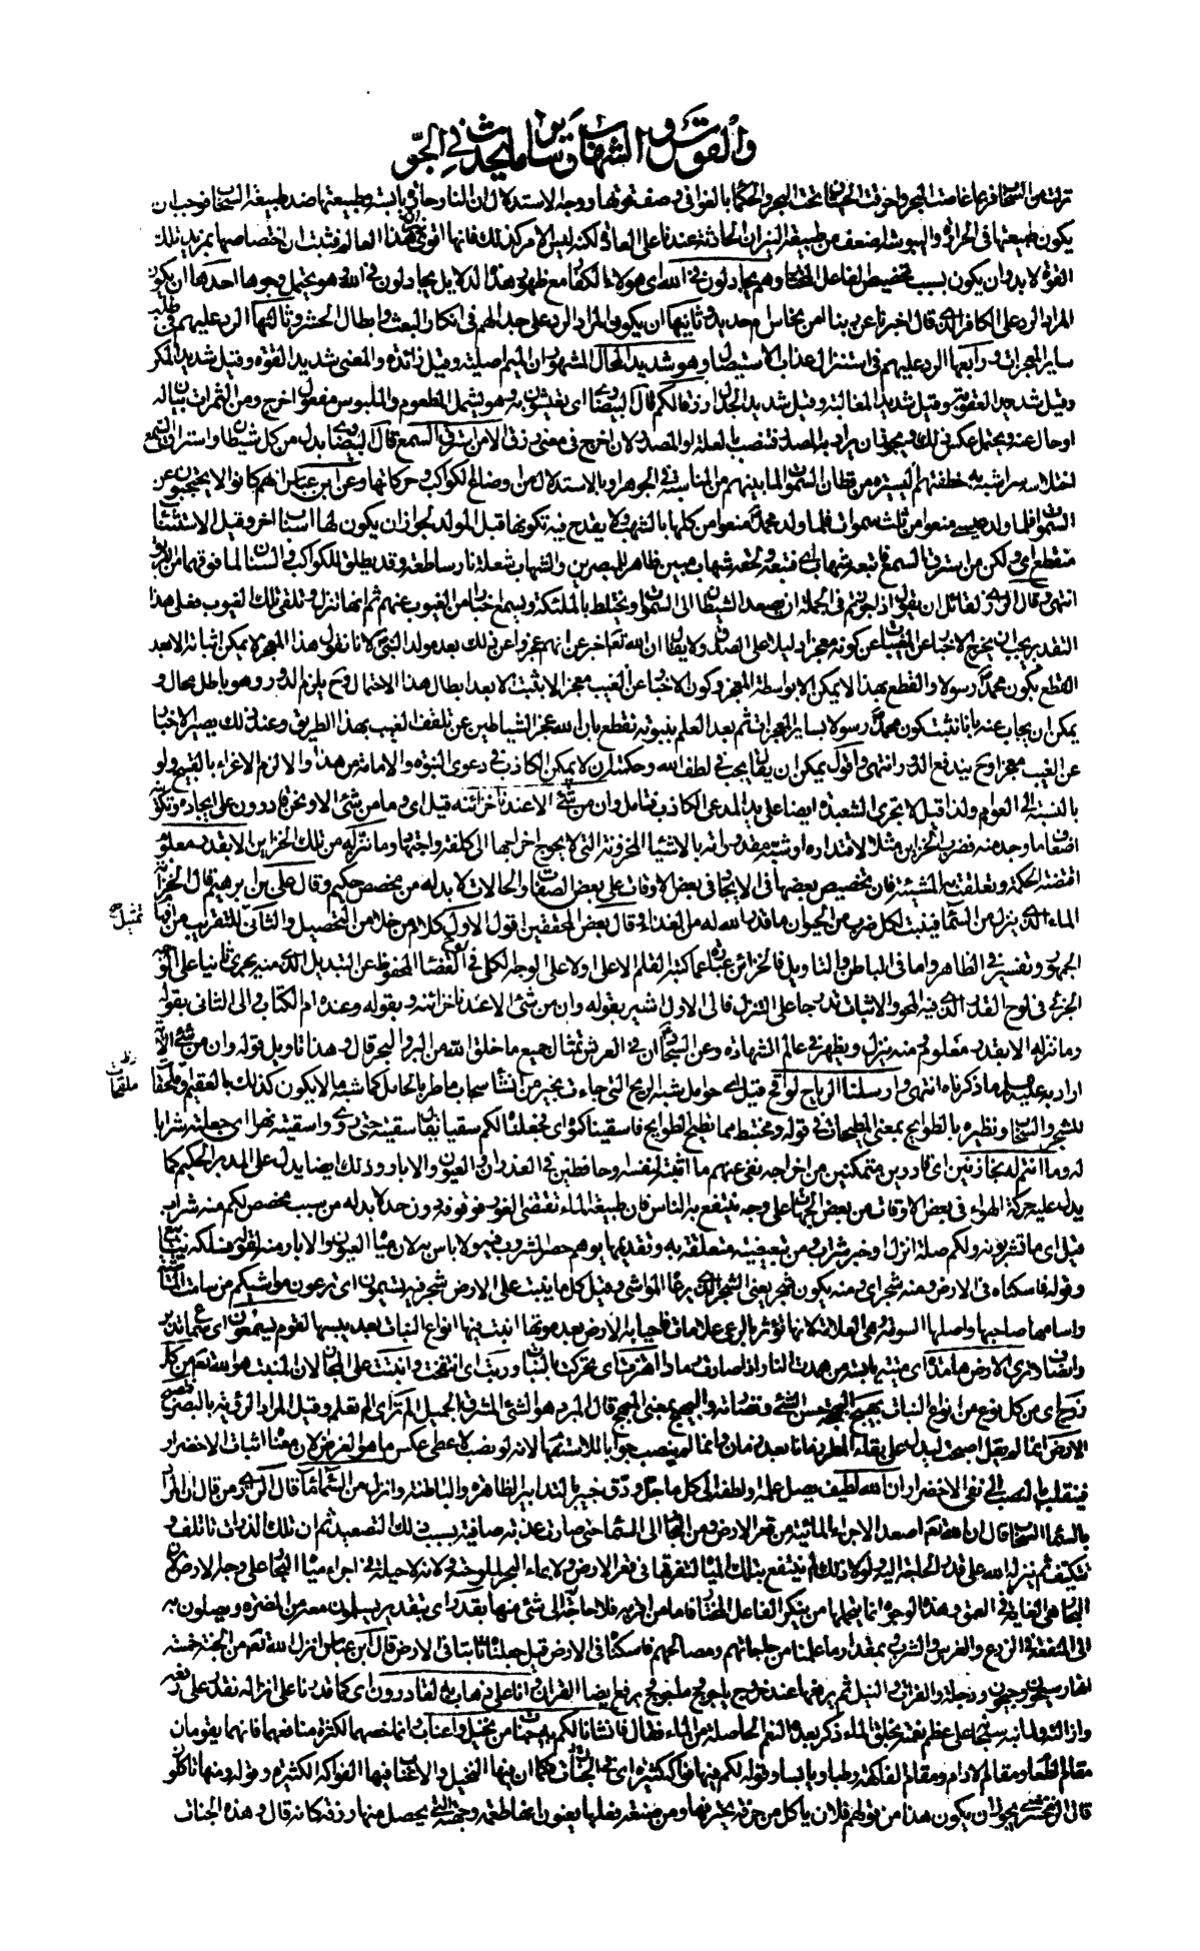 والقوس والشهاب وسائر ما يحدث في الجوّ
نزلت من السحاب فربما غاصت في البحر واحرقت الحيتان تحت البحر والحكماء بالغوا في وصف قوتها ووجه الاستدلال ان النار حارة يابسة وطبيعتها ضد طبيعة السحاب فوجب ان
يكون طبيعتها في الحرارة واليبوسة اضعف من طبيعة النيران الحادثة عندنا على العادة لكنه ليس الامر كذلك فانها اقوى نيران هذا العالم فثبت ان اختصاصها بمزيد تلك
القوة لا بد وان يكون بسبب تخصيص الفاعل المختار وهم يجادلون في الله اى هؤلاء الكفار مع ظهور هذه الدلايل يجادلون في الله وهو يحتمل وجوها احدها ان يكون
المراد الرد على الكافر الذي قال اخبرنا عن ربنا امن نحاس ام حديد وثانيها ان يكون المراد الرد على جدالهم في انكار البعث وابطال الحشر وثالثها الرد عليهم في طلب
ساير المعجزات ورابعها الرد عليهم في استنزال عذاب الاستيصال وهو شديد المحال المشهور ان الميم اصلية وقيل زائدة والمعنى شديد القوة وقيل شديد المكر
وقيل شديد العقوبة وقيل شديد المغالبة وقيل شديد الجدال رزقا لكم قال البيضاوي اى تعيشون به وهو يشمل المطعوم والملبوس مفعول اخرج ومن الثمرات بيان له
او حال عنه ويحتمل عكس ذلك ويجوز ان يراد به المصدر فينصب بالعلة او المصدر لان اخرج في معنى رزق الا من استرق السمع قال البيضاوي بدل من كل شيطان واستراق السمع
اختلاسه سرا شبه به خطفتهم اليسيرة من قطان السموات لما بينهم من المناسبة في الجوهر او بالاستدلال من اوضاع الكواكب وحركاتها وعن ابن عباس انهم كانوا لا يحجبون عن
السموات فلما ولد عيسى منعوا من ثلث سموات فلما ولد محمد منعوا من كلها بالشهب ولا يقدح فيه تكونها قبل المولد لجواز ان يكون لها اسباب اخر وقيل الاستثناء
منقطع اى ولكن من استرق السمع فاتبعه شهاب اى فتبعه ولحقه شهاب مبين ظاهر للمبصرين والشهاب شعلة نار ساطعة وقد يطلق للكواكب والسنان لما فيهما من البريق
انتهى وقال الرازي ولقائل ان يقول اذا جوزتم في الجملة ان يصعد الشيطان الى السموات ويختلط بالملئكة ويسمع اخبارا من الغيوب عنهم ثم انها تنزل وتلقى تلك الغيوب فعلى هذا
التقدير يجب ان يخرج الاخبار عن المغيبات عن كونه معجزا دليلا على الصدق ولا يقال ان الله تعالى اخبر عن انهم عجزوا عن ذلك بعد مولد النبي لانا نقول هذا المعجز لا يمكن اثباته الا بعد
القطع بكون محمد رسولا والقطع بهذا لا يمكن الا بواسطة المعجز وكون الاخبار عن الغيب معجزا لا يثبت الا بعد ابطال هذا الاحتمال وح يلزم الدور وهو باطل محال و
يمكن ان يجاب عنه بانا نثبت كون محمد رسولا بساير المعجزات ثم بعد العلم بنبوته نقطع بان الله عجز الشياطين عن تلقف الغيب بهذا الطريق وعند ذلك يصير الاخبار
عن الغيب معجزا وح يندفع الدور انتهى واقول يمكن ان يقال يجب في لطف الله وحكمته ان لا يمكن الكاذب في دعوى النبوة والامامة من هذا والا لزم الاغراء بالقبيح ولو
بالنسبة الى العوام ولذا قيل لا تجرى الشعبدة ايضا على يد المدعى الكاذب فتامل وان من شئ الا عندنا خزائنه قيل اى وما من شئ الا ونحن قادرون على ايجاده وتكوينه
اضعاف ما وجد منه فضرب الخزاين مثلا لاقتداره او شبه مقدوراته بالاشياء المخزونة التي لا يحوج اخراجها الى كلفة واجتهاد وما ننزله من تلك الخزاين الا بقدر معلوم
اقتضته الحكمة وتعلقت به المشيئة فان تخصيص بعضها في الايجاد في بعض الاوقات على بعض الصفات والحالات لا بد له من مخصص حكيم وقال علي بن ابرهيم قال الخزانة
الماء الذي ينزل من السماء فينبت لكل ضرب من الحيوان ما قدر الله له من الغذاء وقال بعض المحققين اقول الاول كلام من خلا من التحصيل والثاني للتقريب من افهام
الجمهور وتفسير في الظاهر واما في الباطن والتاويل فالخزائن عبارة عما كتبه القلم الاعلى اولا على الوجه الكلى في لوح القضاء المحفوظ عن التبديل الذي منه يجرى ثانيا على الوجه
الجزئى في لوح القدر الذي فيه المحو والاثبات تدريجا على التنزل فالى الاول اشير بقوله وان من شئ الا عندنا خزائنه وبقوله وعنده ام الكتاب والى الثاني بقوله
وما ننزله الا بقدر معلوم ومنه ينزل ويظهر في عالم الشهادة وعن السجاد ان في العرش تمثال جميع ما خلق الله من البر والبحر قال وهذا تاويل قوله وان من شئ الا
اراد به عليه السلم ما ذكرناه انتهى وارسلنا الرياح لواقح قيل اى حوامل شبه الريح التي جاءت بخير من انشاء سحاب ماطر بالحامل كما شبه ما لا يكون كذلك بالعقيم او ملقحات
للشجر والسحاب ونظيره بالطوايح بمعنى المطيحات في قوله ومختبط مما تطيح الطوايح فاسقيناكموه اى فجعلناه لكم سقيا يقال سقيته حتى روى واسقيته نهرا اى جعلته شرابا
له وما انتم له بخازنين اى قادرين متمكنين من اخراجه نفى عنهم ما اثبته لنفسه او حافظين في الغدران والعيون والابار وذلك ايضا يدل على المدبر الحكيم كما
يدل عليه حركة الهواء في بعض الاوقات من بعض الجهات على وجه ينتفع به الناس فان طبيعة الماء تقتضى الغور فوقوفه دون حد لا بد له من سبب مخصص لكم منه شراب
قيل اى ما تشربونه ولكم صلة انزل او خبر شراب ومن تبعيضية متعلقة به وتقديمها يوهم حصر المشروب فيه ولا باس به لان مياه العيون والابار منه لقوله فسلكه ينابيع
وقوله فاسكناه في الارض ومنه شجر اى ومنه يكون شجر يعنى الشجر الذي يرعاه المواشى وقيل كل ما ينبت على الارض شجر فيه تسيمون اى ترعون مواشيكم من سامت الماشية
واسامها صاحبها واصلها السومة وهى العلامة لانها تؤثر بالرعى علامات فاحيا به الارض بعد موتها انبت فيها انواع النبات بعد يبسها لقوم يسمعون اى سماع تدبر
وانصاف وترى الارض هامدة اى ميتة يابسة من همدت النار اذا صارت رمادا اهتزت اى تحركت بالنبات وربت اى انتفخت وانبتت على المجاز لان المنبت هو الله تعالى من كل
زوج اى من كل نوع من انواع النبات بهيج البهجة حسن الشئ ونضارته والبهيج بمعنى المبهج قال المبرد هو الشئ المشرق الجميل الم تر اى الم تعلم وقيل المراد الرؤية بالبصر فتصبح
الارض انما لم يقل اصبحت ليدل على بقاء اثر المطر زمانا بعد زمان وانما لم ينصب جوابا للاستفهام لانه لو نصب لاعطى عكس ما هو الغرض لان معناه اثبات الاخضرار
فينقلب بالنصب الى نفى الاخضرار ان الله لطيف يصل علمه ولطفه الى كل ما جل ودق خبير بالتدابير الظاهرة والباطنة وانزل من السماء ماء قال الرازي ومن قال ان المراد
بالسماء السحاب قال ان الله تعالى اصعد الاجزاء المائية من قعر الارض ومن البحار الى السماء حتى صارت عذبة صافية بسبب ذلك التصعيد ثم ان تلك الذرات تاتلف و
تتكثف ثم ينزله الله على قدر الحاجة اليه ولولا ذلك لم ينتفع بتلك المياه لتفرقها في قعر الارض ولا بماء البحر لملوحته ولانه لا حيلة في اجراء مياه البحار على وجه الارض لان
البحار هى الغاية في العمق وهذه الوجوه انما يتحملها من ينكر الفاعل المختار فاما من اقر به فلا حاجة الى شئ منها بقدر اى بتقدير يسلمون معه من المضرة ويصلون به
الى المنفعة في الزرع والغرس والشرب او بمقدار ما علمنا من حاجاتهم ومصالحهم فاسكناه في الارض قيل جعلناه ثابتا في الارض قال ابن عباس انزل الله تعالى من الجنة خمسة
انهار سيحون وجيحون ودجلة والفرات والنيل ثم يرفعها عند خروج ياجوج وماجوج ويرفع ايضا القران وانا على ذهاب به لقادرون اى كما قدرنا على انزاله نقدر على رفعه
وازالته ولما نبه سبحانه على عظم نعمته بخلق الماء ذكر بعده النعم الحاصلة من الماء فقال فانشانا لكم به جنات من نخيل واعناب وانما خصهما لكثرة منافعهما فانهما يقومان
مقام الطعام ومقام الادام ومقام الفاكهة رطبا ويابسا وقوله لكم فيها فواكه كثيرة اى في الجنات فكما ان فيها النخيل والاعناب فيها الفواكه الكثيرة وقوله ومنها تاكلون
قال الزمخشري يجوز ان يكون هذا من قولهم فلان ياكل من حرفة يحترفها ومن صنعة يفعلها يعنون انها طعمته وجهته التي يحصل منها رزقه كانه قال وهذه الجنات
تمثيل
ملقحات